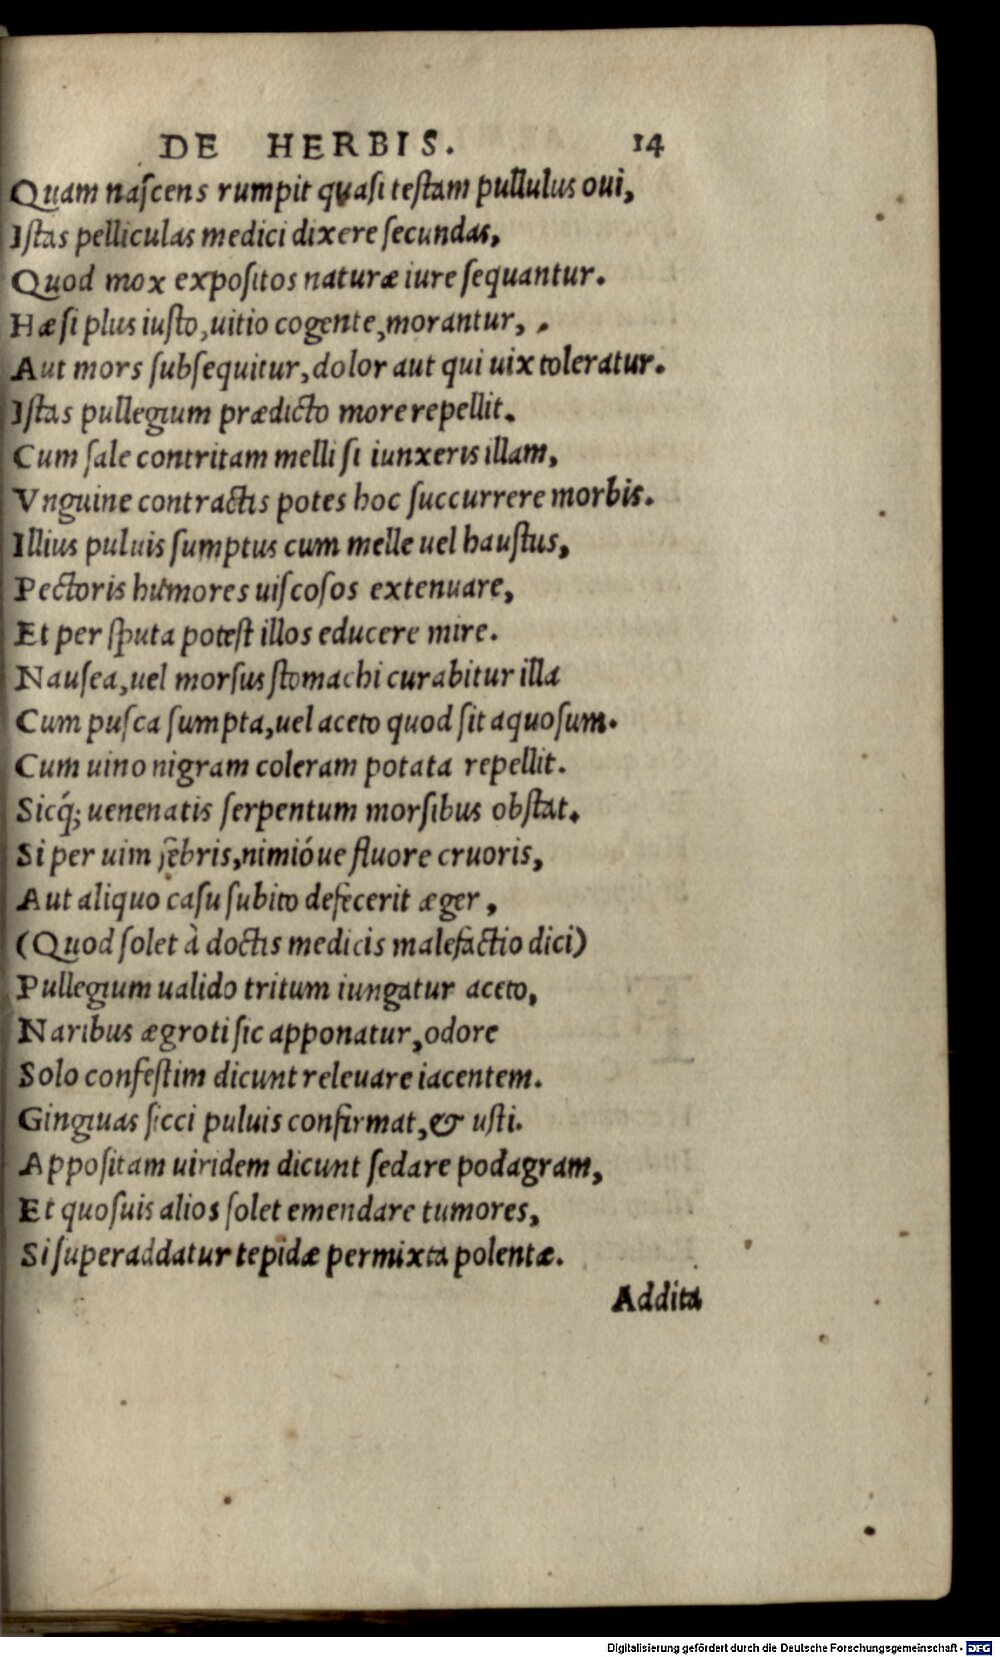 DE HERBIS. 14
Quam naſcens rumpit quaſi teſtam pullulus oui,
Iſtas pelliculas medici dixere ſecundas,
Quod mox expoſitos naturæ iure ſequantur.
Hæ ſi plus iuſto, uitio cogente, morantur,
Aut mors ſubſequitur, dolor aut qui uix toleratur.
Iſtas pullegium prædicto more repellit.
Cum ſale contritam melli ſi iunxeris illam,
Vnguine contractis potes hoc ſuccurrere morbis.
Illius puluis ſumptus cum melle uel hauſtus,
Pectoris humores uiſcoſos extenuare,
Et per ſputa poteſt illos educere mire.
Nauſea, uel morſus ſtomachi curabitur illa
Cum puſca ſumpta, uel aceto quod ſit aquoſum.
Cum uino nigram coleram potata repellit.
Sicq́; uenenatis ſerpentum morſibus obſtat.
Si per uim febris, nimióue fluore cruoris,
Aut aliquo caſu ſubito defecerit æger,
(Quod ſolet à doctis medicis malefactio dici)
Pullegium ualido tritum iungatur aceto,
Naribus ægroti ſic apponatur, odore
Solo confeſtim dicunt releuare iacentem.
Gingiuas ſicci puluis confirmat, & uſti.
Appoſitam uiridem dicunt ſedare podagram,
Et quoſuis alios ſolet emendare tumores,
Si ſuperaddatur tepidæ permixta polentæ.
Addita
Digitalisierung gefördert durch die Deutsche Forschungsgemeinschaft - DFG